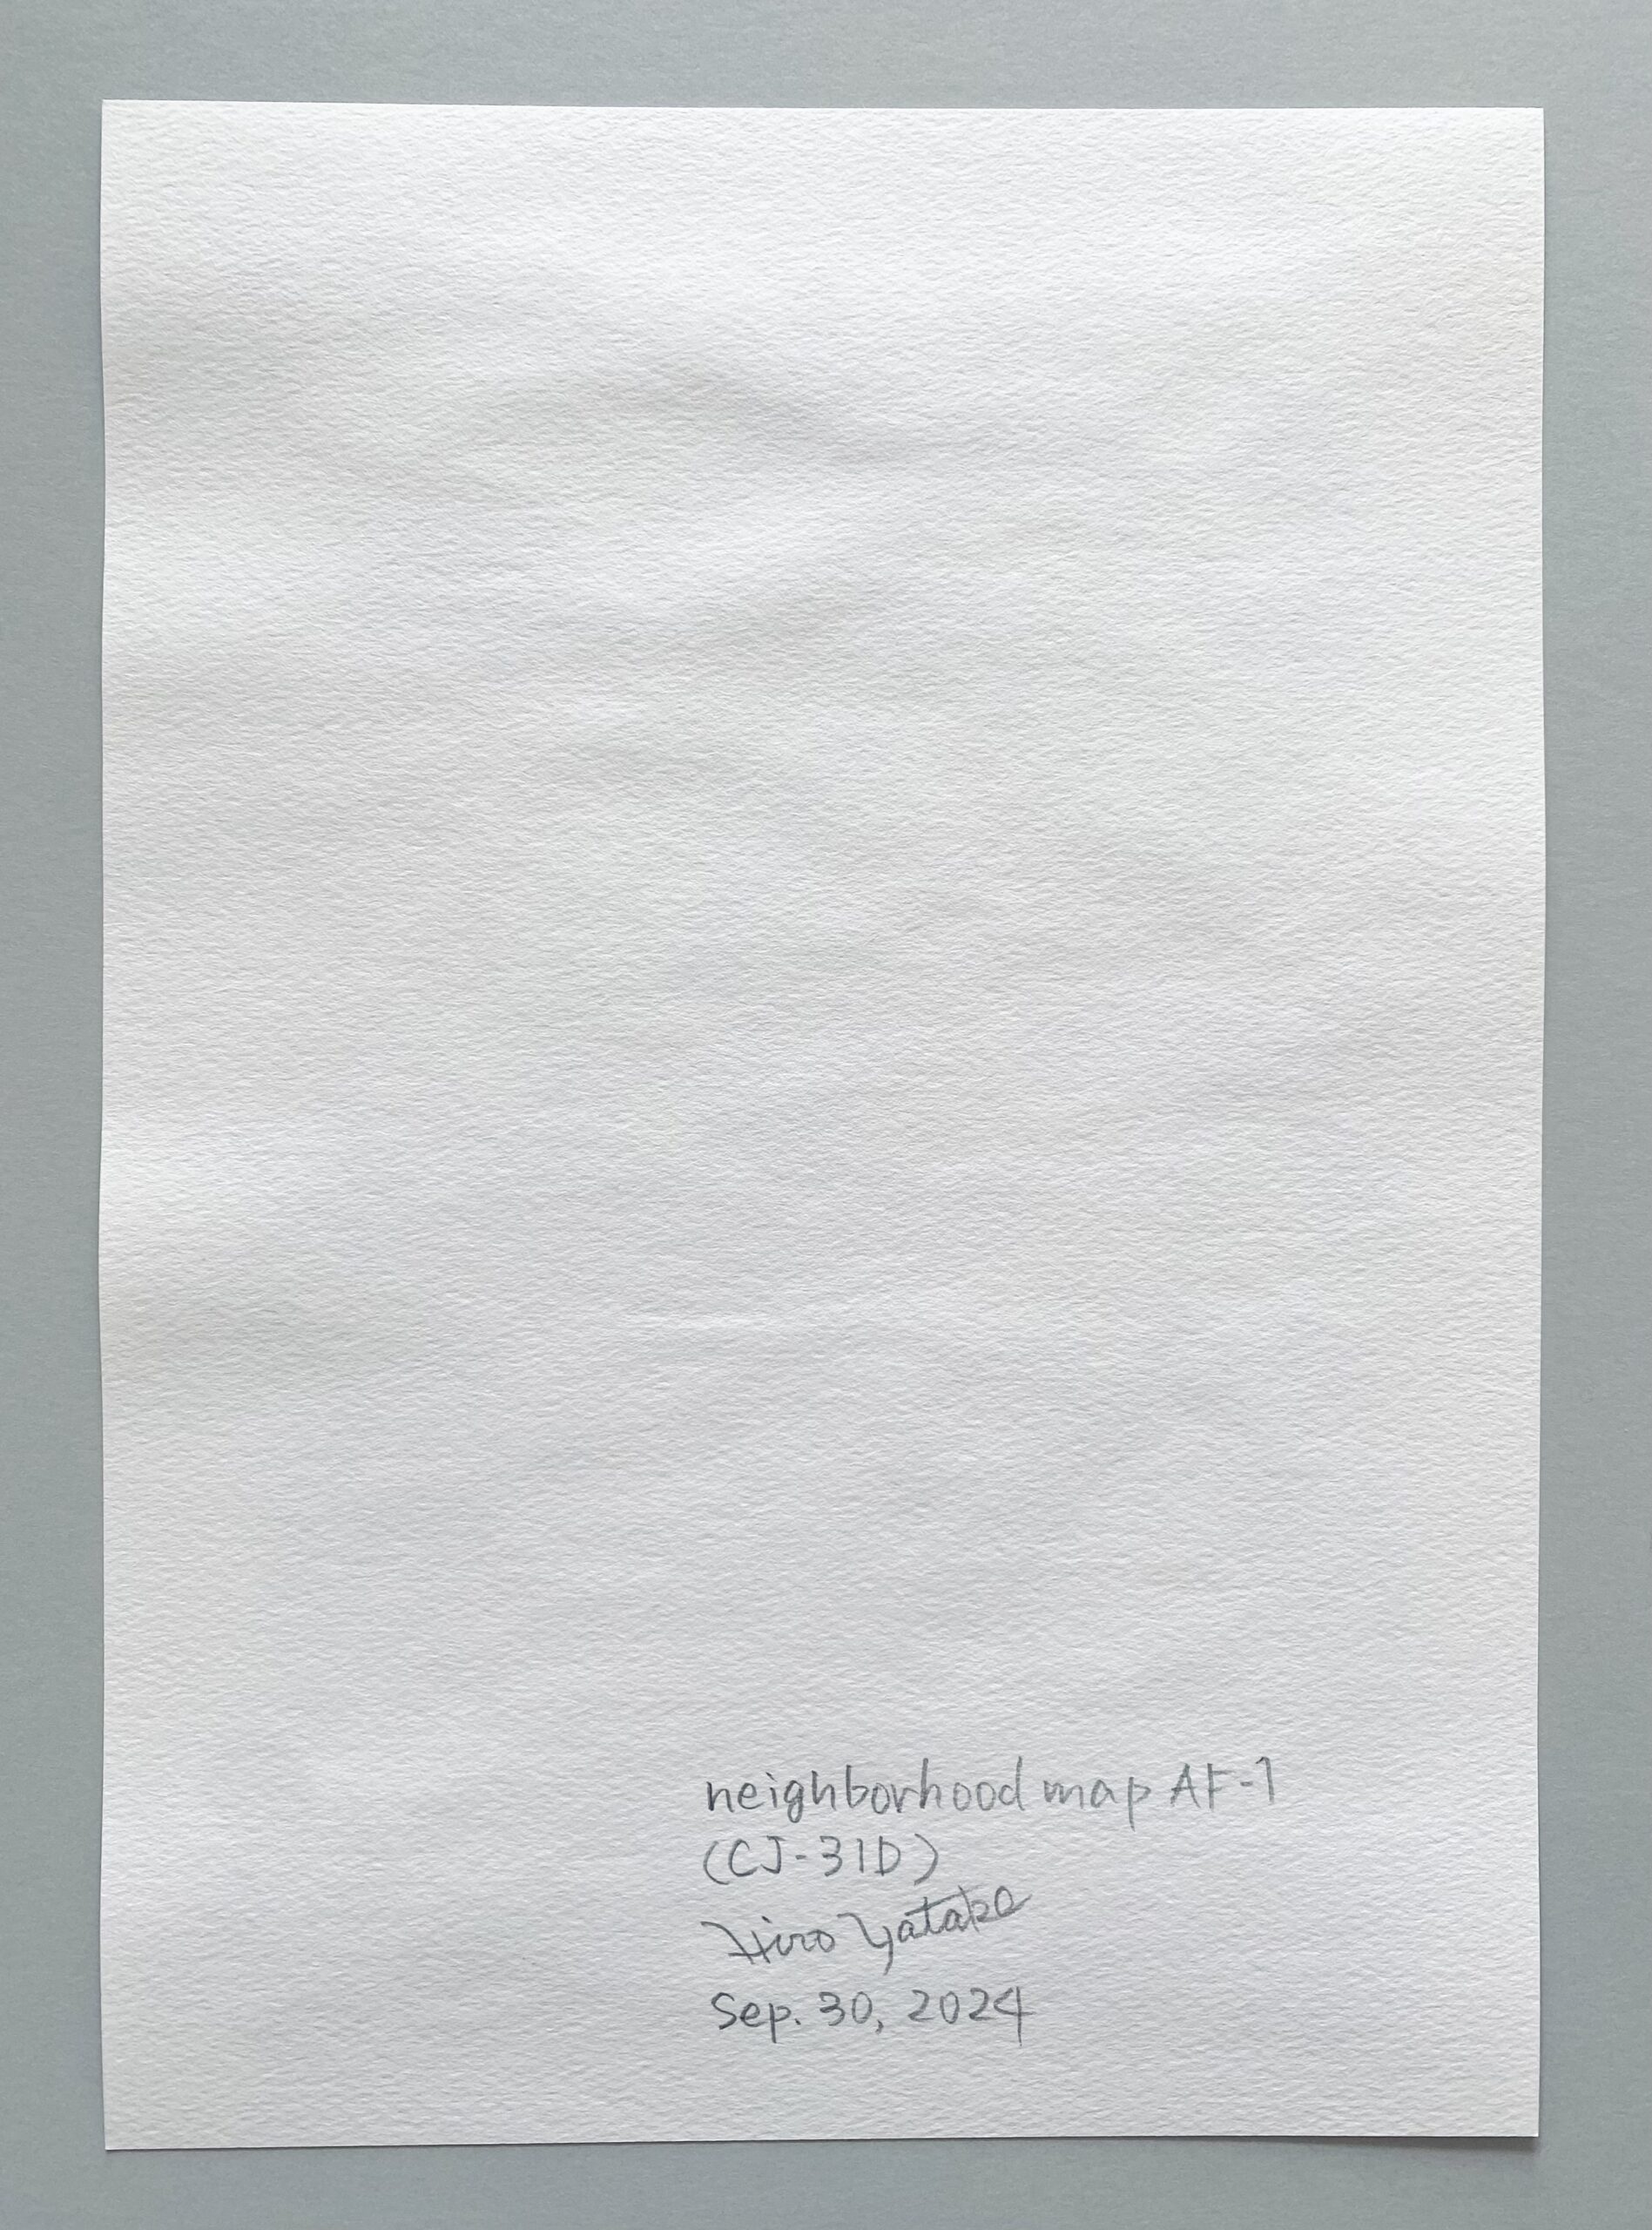 neighborhood map AF-1
(CJ-31D)
Hiro Yatabe
Sep. 30, 2024